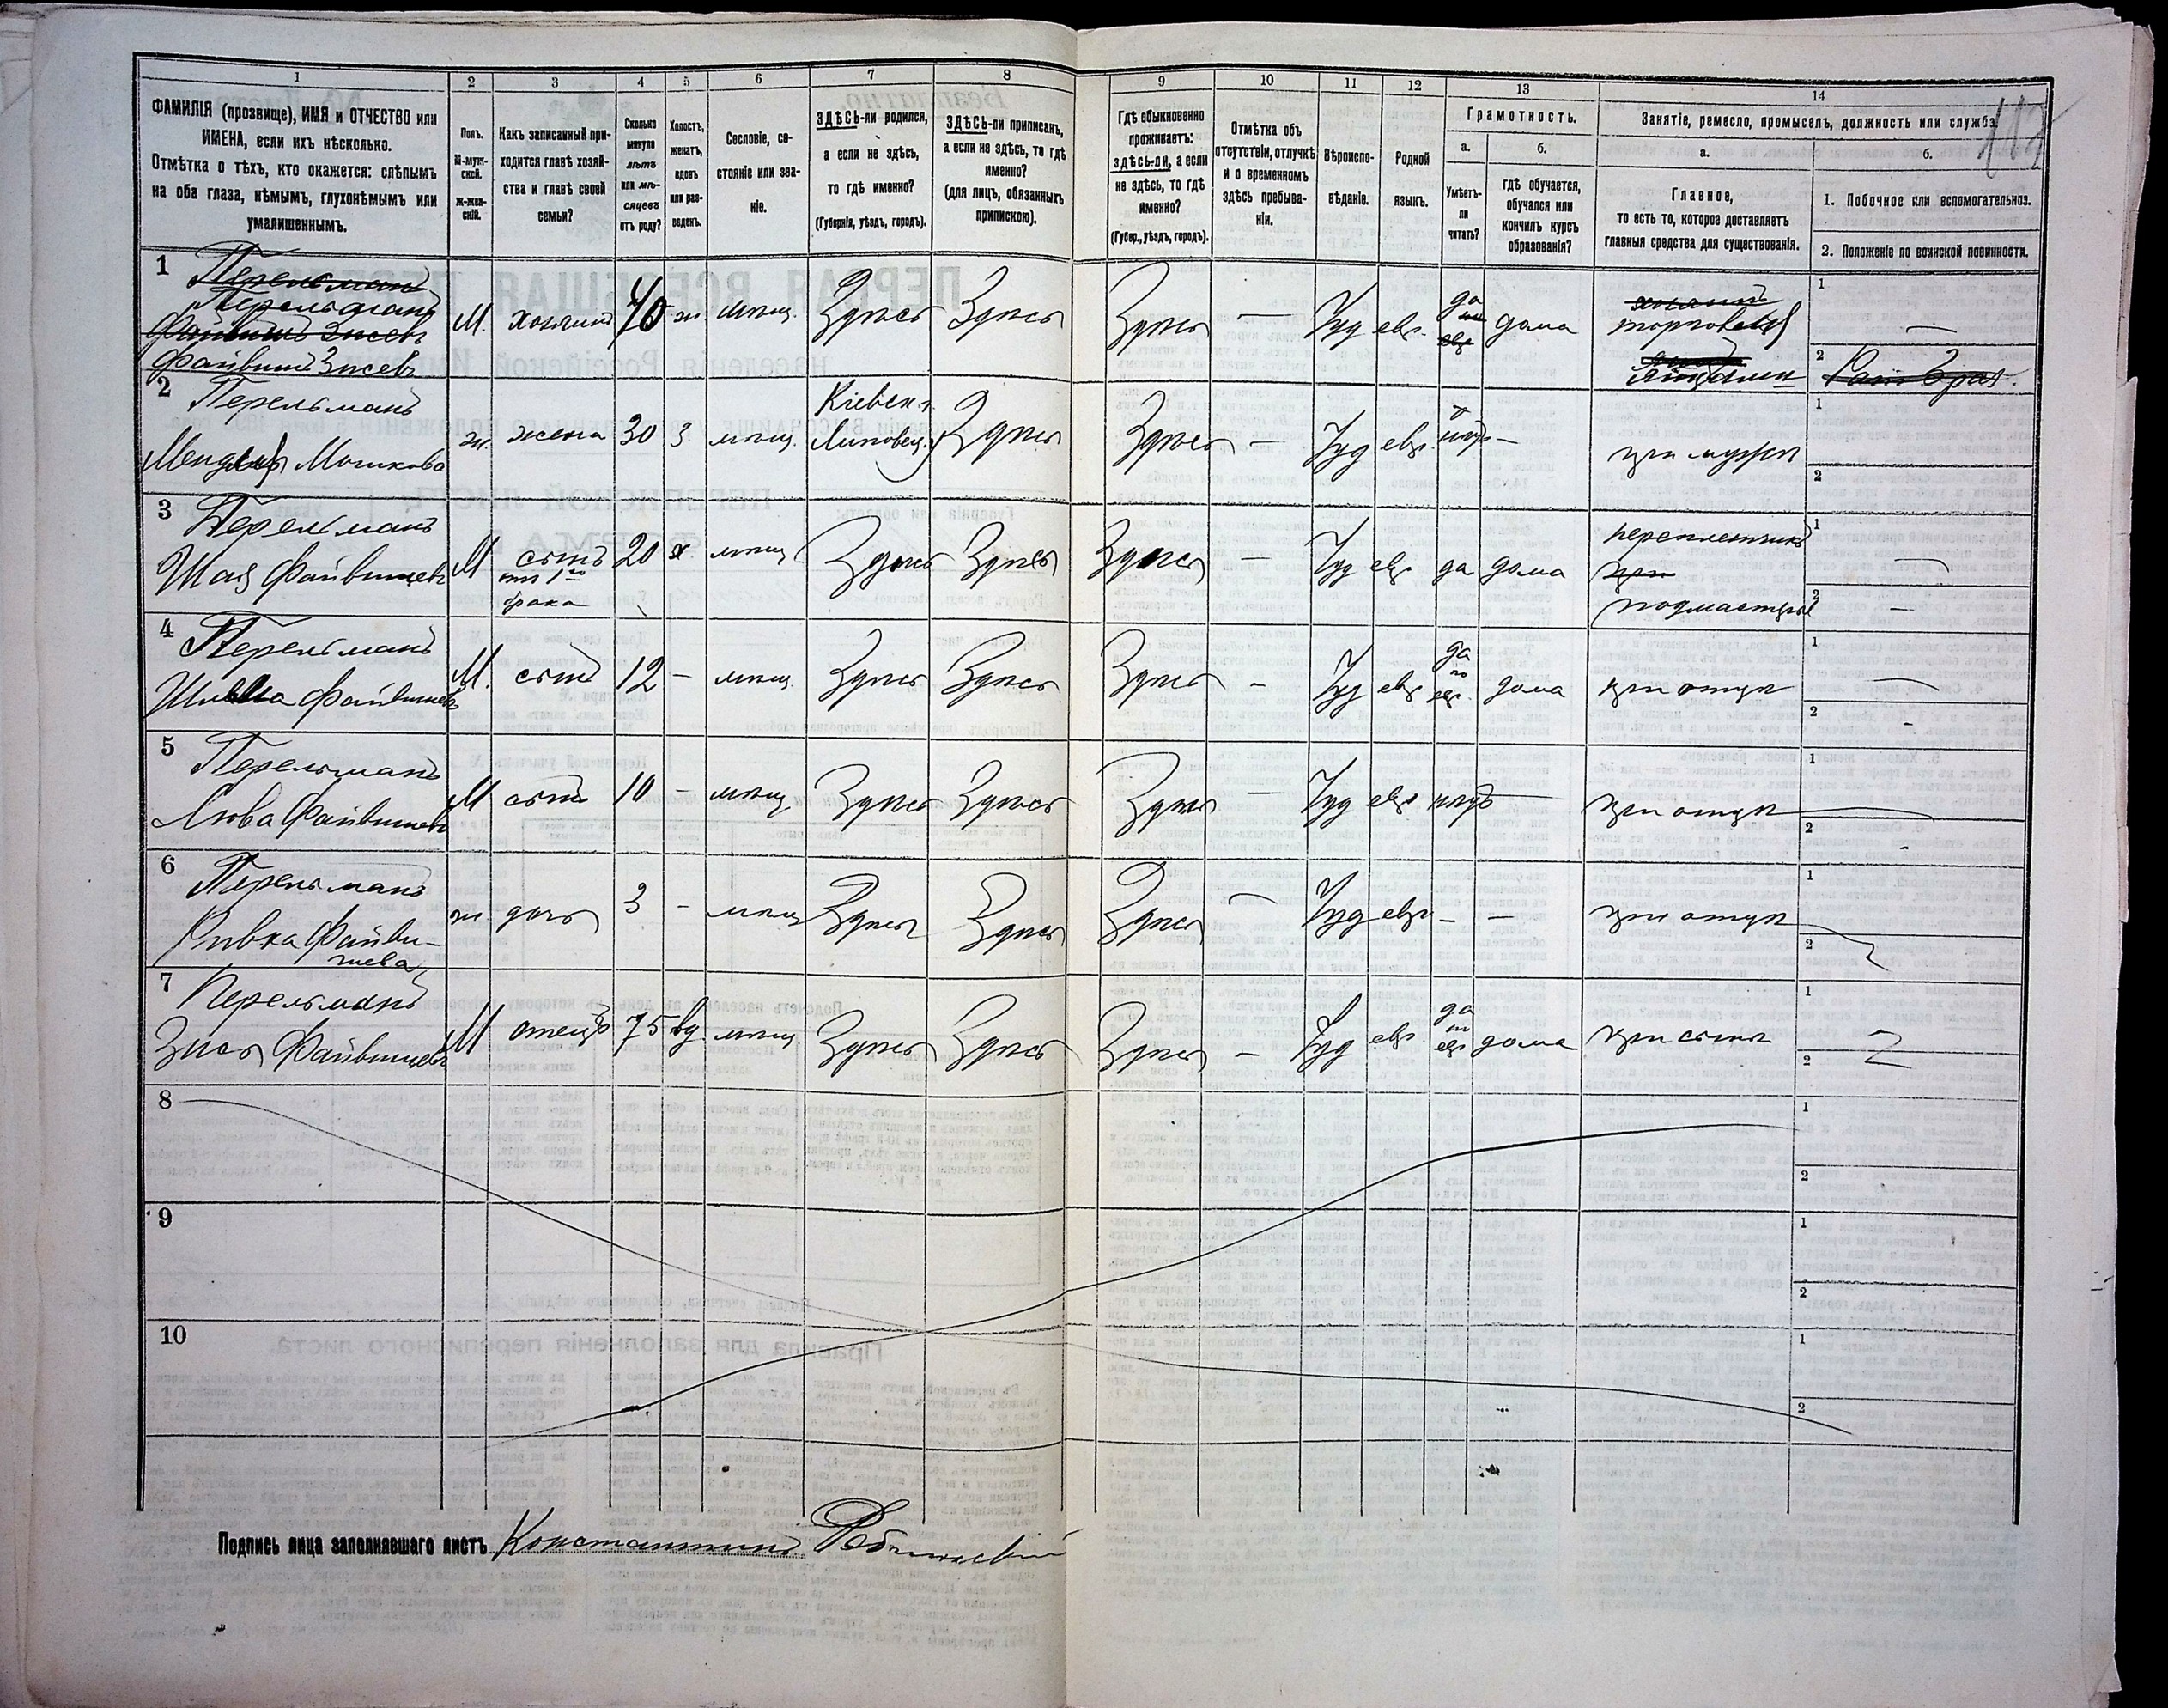 1 2 3 4 5 6 7 8 9 10 11 12 13 14
ФАМИЛІЯ (прозвище), ИМЯ и ОТЧЕСТВО или
ИМЕНА, если ихъ нѣсколько.
Отмѣтка о тѣхъ, кто окажется: слѣпымъ
на оба глаза, нѣмымъ, глухонѣмымъ или
умалишеннымъ.
Полъ.
М-муж-
ской.
ж-жен-
скій.
Какъ записанный при-
ходится главѣ хозяй-
ства и главѣ своей
семьи?
Сколько
минуло
лѣтъ
или мѣ-
сяцевъ
отъ роду?
Холостъ,
женатъ,
вдовъ
или раз-
веденъ.
Сословіе, со-
стояніе или зва-
ніе.
ЗДѢСЬ-ли родился,
а если не здѣсь,
то гдѣ именно?
(Губернія, уѣздъ, городъ).
ЗДѢСЬ-ли приписанъ,
а если не здѣсь, то гдѣ
именно?
(для лицъ, обязанныхъ
припискою).
Гдѣ обыкновенно
проживаетъ:
здѣсь-ли, а если
не здѣсь, то гдѣ
именно?
(Губер., уѣздъ, городъ).
Отмѣтка объ
отсутствіи, отлучкѣ
и о временномъ
здѣсь пребыва-
ніи.
Вѣроиспо-
вѣданіе.
Родной
языкъ.
Грамотность.
а.
Умѣетъ-
ли
читать?
б.
гдѣ обучается,
обучался или
кончилъ курсъ
образованія?
Занятіе, ремесло, промыселъ, должность или служба.
а.
Главное,
то есть то, которое доставляетъ
главныя средства для существованія.
б.
1. Побочное или вспомогательное.
2. Положеніе по воинской повинности.
1 Перельманъ
Перельманъ
Файвишъ Зисевъ
Файвишъ Зисевъ
М. хозяинъ 40 ж. мѣщ. Здѣсь Здѣсь Здѣсь — Iуд евр. да дома торговецъ
1 —
2
2 Перельманъ
Мошкова
ж. жена 30 з мѣщ. Кіевск. г.
Липовец. у. Здѣсь Здѣсь — Iуд евр. нѣтъ — при мужѣ
1
2
3 Перельманъ
Шая Файвишевъ
М сынъ
отъ 1го
брака
20 х. мѣщ Здѣсь Здѣсь Здѣсь — Iуд евр да дома переплетчикъ
при
подмастерье
1 —
2 —
4 Перельманъ
Файвишевъ
М. сынъ 12 – мѣщ. Здѣсь Здѣсь Здѣсь – Iуд евр да
по
евр. дома при отцѣ
1 —
2 -
5 Перельманъ
Лейва Файвишевъ
М сынъ 10 – мѣщ. Здѣсь Здѣсь Здѣсь — Iуд евр нѣтъ — при отцѣ
1 —
2 -
6 Перельманъ
Ривка Файви-
шева
ж. дочь 3 – мѣщ Здѣсь Здѣсь Здѣсь — Iуд евр – – при отцѣ
1
2
7 Перельманъ
Зись Файвишевъ
М отецъ 75 вд. мѣщ. Здѣсь Здѣсь Здѣсь – Iуд евр. да
по
евр дома при сынѣ
1
2
8
1
2
9
1
2
10
1
2
Подпись лица заполнявшаго листъ Константинъ